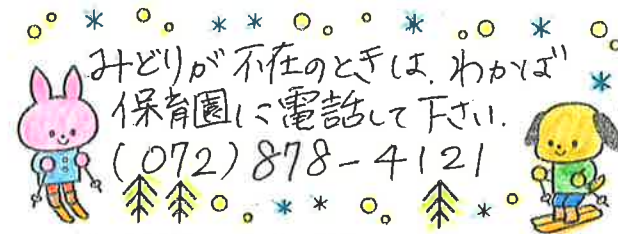 みどりが不在のときは、わかば
保育園に電話して下さい.
(072)878-4121